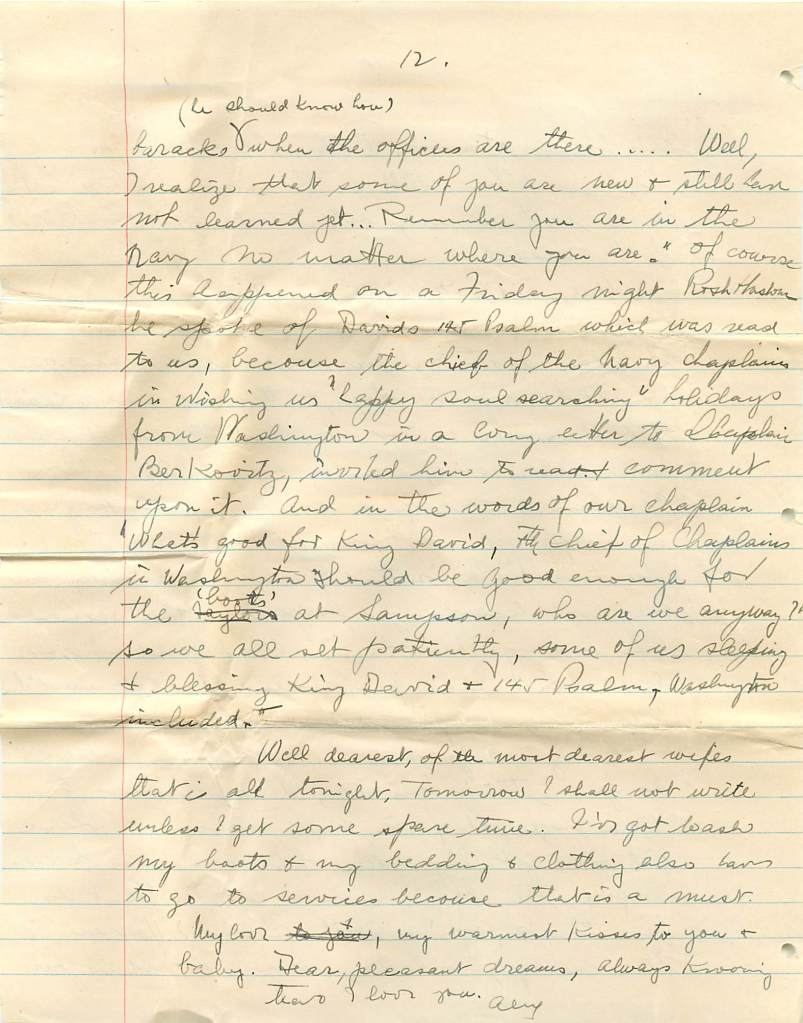 12.
(he should know how)
baracks when the officers are there ..... Well,
I realize that some of you are new & still have
not learned yet... Remember you are in the
Navy no matter where you are." Of course
this happened on a Friday night Rosh Hashon
he spoke of Davids 145 Psalm which was read
to us, because the chief of the Navy chaplains
in wishing us "happy soul searching" holidays
from Washington in a long letter to Chaplain
Berkovitz, invited him to read & comment
upon it. And in the words of our chaplain
"What's good for King David, the chief of Chaplains
in Washington should be good enough for
'boots'
the at Sampson, who are we anyway?"
so we all set patiently, some of us sleeping
& blessing King David & 145 Psalm, Washington
included."
Well dearest, of the most dearest wifes
that is all tonight, Tomorrow I shall not write
unless I get some spare time. I've got wash
my boots & my bedding & clothing also have
to go to services because that is a must.
My love to you, my warmest kisses to you &
baby. Dear, pleasant dreams, always knowing
I love you.